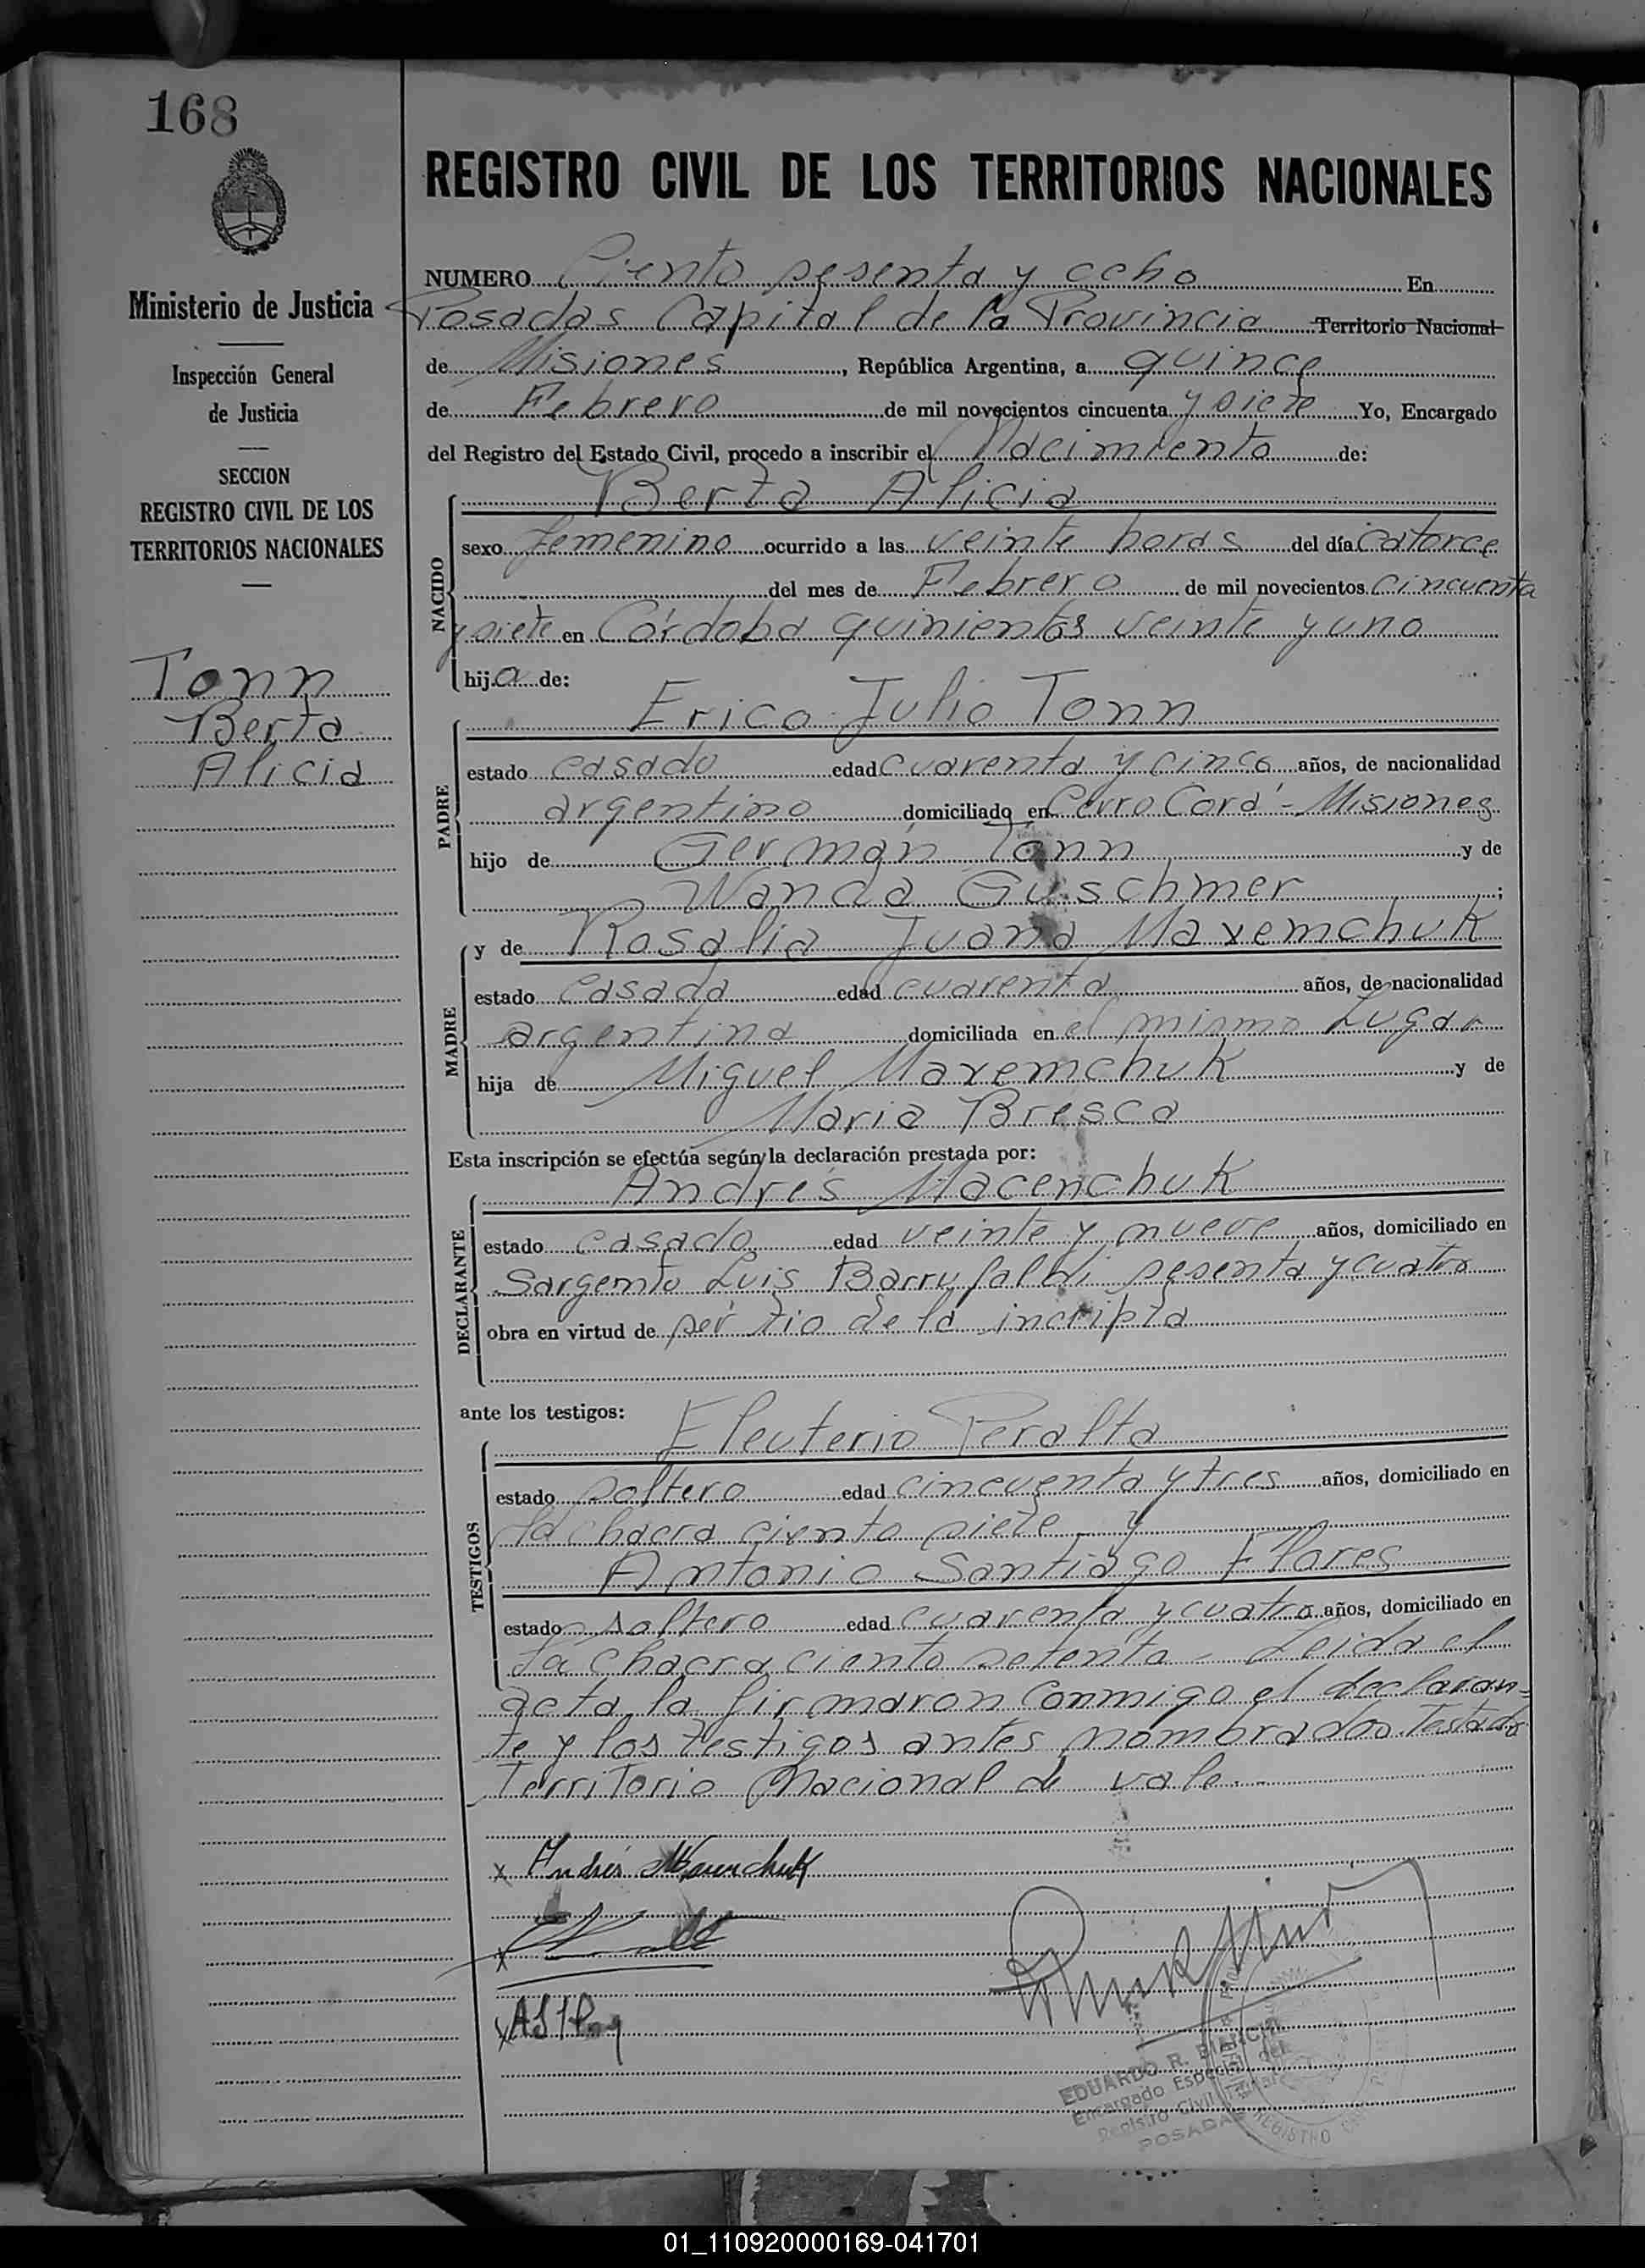 168
REGISTRO CIVIL DE LOS TERRITORIOS NACIONALES
Ministerio de Justicia
Inspección General
de Justicia
SECCION
REGISTRO CIVIL DE LOS
TERRITORIOS NACIONALES
Tonn
Berta
Alicia
NUMERO Ciento sesenta y ocho En
Posadas Capital de la Provincia Territorio Nacional
de Misiones, República Argentina, a quince
de Febrero de mil novecientos cincuenta y siete Yo, Encargado
del Registro del Estado Civil, procedo a inscribir el Nacimiento de:
NACIDO
Berta Alicia
sexo femenino ocurrido a las veinte horas del día catorce
del mes de Febrero de mil novecientos cincuenta
y siete en Córdoba quinientos veinte y uno
hija de:
PADRE
Erico Julio Tonn
estado casado edad cuarenta y cinco años, de nacionalidad
argentino domiciliado en Cerro Corá - Misiones
hijo de Germán Tonn y de
Wanda Guschmer;
MADRE
y de Rosalia Juana Maxemchuk
estado casada edad cuarenta años, de nacionalidad
argentina domiciliada en el mismo Lugar
hija de Miguel Maxemchuk y de
Maria Bresca
Esta inscripción se efectúa según la declaración prestada por:
DECLARANTE
Andrés Macenchuk
estado casado edad veinte y nueve años, domiciliado en
Sargento Luis Barrufaldi sesenta y cuatro
obra en virtud de ser tio de la incripta
ante los testigos:
TESTIGOS
Eleuterio Peralta
estado soltero edad cincuenta y tres años, domiciliado en
la chacra ciento siete y
Antonio Santiago Flores
estado soltero edad cuarenta y cuatro años, domiciliado en
la chacra ciento setenta - Leida el
acta, la firmaron conmigo el declaran=
te y los testigos antes nombrados. Testado
Territorio Nacional de vale.-
x Andrés
x
x
EDUARDO R.
Encargado Especial del
Registro Civil
POSADAS
REGISTRO
01_110920000169-041701